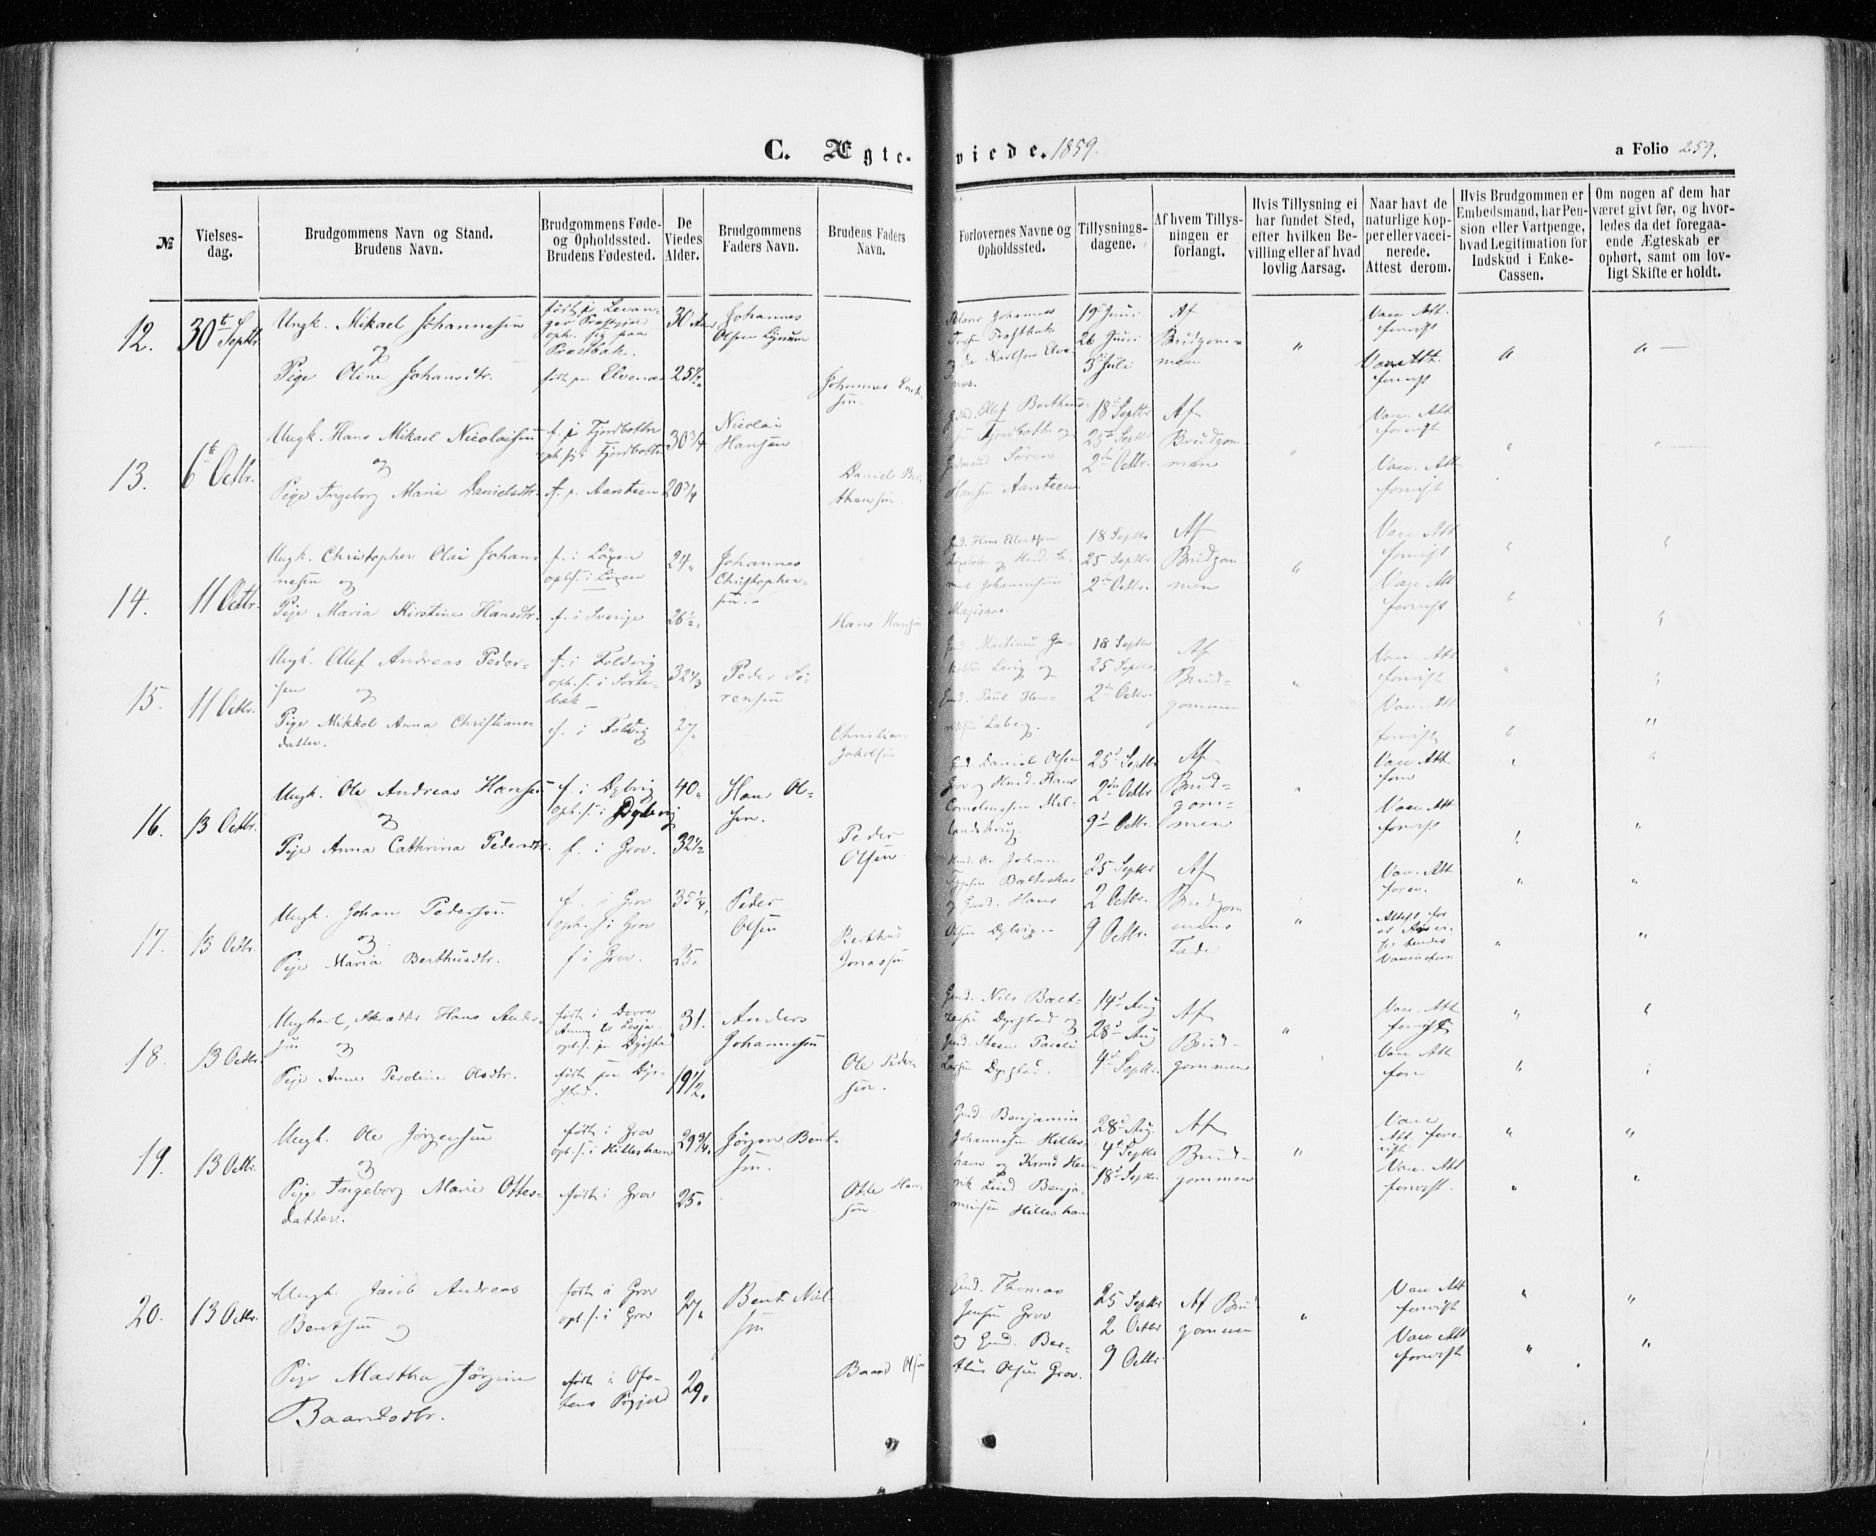 C. Ægte-viede. 1859.
a Folio 259.
№
Vielses-dag.
Brudgommens Navn og Stand.
Brudens Navn.
Brudgommens Føde-
og Opholdssted.
Brudens Fødested.
De
Viedes
Alder.
Brudgommens
Faders Navn.
Brudens Faders
Navn.
Forlovernes Navne og
Opholdssted.
Tillysnings-
dagene.
Af hvem Tillys-
ningen er
forlangt.
Hvis Tillysning ei
har fundet Sted,
efter hvilken Be-
villing eller af hvad
lovlig Aarsag.
Naar havt de
naturlige Kop-
per eller vacci-
nerede.
Attest derom.
Hvis Brudgommen er
Embedsmand, har Pen-
sion eller Vartpenge,
hvad Legitimation for
Indskud i Enke-
Cassen.
Om nogen af dem har
været givt før, og hvor-
ledes da det foregaa-
ende Ægteskab er
ophørt, samt om lov-
ligt Skifte er holdt.
12.
30t Septbr.
Ungk. Mikael Johannesen
og
Pige Oline Johansdtr.
født p. Levan-
ger Præstgjeld
oph. sig paa
født p. Elvenes
30 Aar
25½.
Johannes
Olsen
Johannes
sen
19 Juni
26 Juni
3 Juli
Af
Brudgom-
men
Vac. Att.
forevist
Vac. Att.
forevist
13.
6t Octbr.
Ungk. Hans Mikael Nicolaisen
og
Pige Ingeborg Marie Danielsdtr.
f. p. Fjordbotten
oph. sig Fjordbotten
f. p. Aarsteen
30 3/4
20 3/4
Nicolai
Hansen
Daniel Ber-
thensen
Fjordbotten og
Gdmand Søren
Hansen Aarsteen
18 Septbr
25 Septbr
2den Octbr.
Af
Brudgom
men
Vac. Att
forevist
Vac. Att
forevist
14.
11 Octbr.
Ungk. Christopher Olai Johan-
nesen og
Pige Maria Kirstine Hansdtr.
f. i Løxen
oph. s. i Løxen
f. i Sverige
24.
26½.
Johannes
Christopher-
sen.
Hans Hansen
18 Septbr
25 Septbr.
2den Octbr.
Af
Brudgom
men
Vac. Att
forevist
Vac. Att
forevist
15.
11 Octbr.
Ungk. Olef Andreas Peder-
sen og
Pige Mikkol Anna Christians-
datter.
f. i Foldvig
oph. s. i Sorte-
bæk
f. i Foldvig
32 1/3
27.
Peder Sø-
rensen
Christian
Jakobsen
18 Septbr
25 Septbr.
2den Octbr.
Af
Brud-
gommen
Vac. Att
forevist
Vac. Att
forevist
16.
13 Octbr.
Ungk. Ole Andreas Hansen
og
Pige Anna Cathrina Pedersdtr.
f. i Dylvig
oph. s. i Dylvig
f. i Grov.
40.
32½
Hans Ol-
sen.
Peder
Olsen
Gmd. Daniel Olsen
Grov og
25 Septbr
2den Octbr
9 Octbr.
Af
Brud-
gom-
men
Vac. Att
forev
Vac. Att
forevist
17.
13 Octbr.
Ungk. Johan Pedersen
og
Pige Maria Berthusdtr.
f. i Grov
oph. s. i Grov
f. i Grov.
35¼.
25.
Peder
Olsen
Berthus
Jonassen
og Gmd. Hans
Olsen Dylvig.
25 Septbr
2 Octbr.
9 Octbr.
Af
Brudgom
mens
Fader
Vac. Att
forev.
18.
13 Octbr.
Ungkarl, Hans Ander-
sen og
Pige Anne Perdine Olsdtr.
født i Dovre
oph. s. paa Dyrstad
født paa Dyr-
stad.
31.
19½.
Anders
Johannesen
Ole Peder-
sen.
Gmd. Nils
Dyrstad og
Larsen Dyrstad.
14 Aug
28 Aug
4 Septbr.
Af
Brud-
gommen
Vac. Att
forevist
Vac. Att
forev
19.
13 Octbr.
Ungk. Ole Jørgensen
og
Pige Ingeborg Marie Ottes-
datter.
født i Grov
oph. s. i Hilleshamn
født i Grov
29 3/4.
25.
Jørgen Bent-
sen.
Otte Han-
sen
Gmd. Benjamin
Johannesen Hilles-
hamn og Knud Hen-
rik Lind Benja-
minsen Hilleshamn
28 Aug.
4 Septbr
18 Septbr.
Af
Brud-
gommen
Vacc
Att. fore-
vist
Vac. Att
forevist.
20.
13 Octbr.
Ungk. Jacob Andreas
Bentsen og
Pige Martha Jørgine
Baardsdtr.
født i Grov
oph. s. i Grov
født i Ofo-
tens Prgjeld
27.
29.
Bent Niel-
sen
Baard Olsen
Gmd. Thomas
Jensen Grov
og Gmd. Ber-
thus Olsen Grov.
25 Septbr
2 Octbr
9 Octbr.
Af Brud
gommen
Vac Att
forevist
Vac Att
forevist